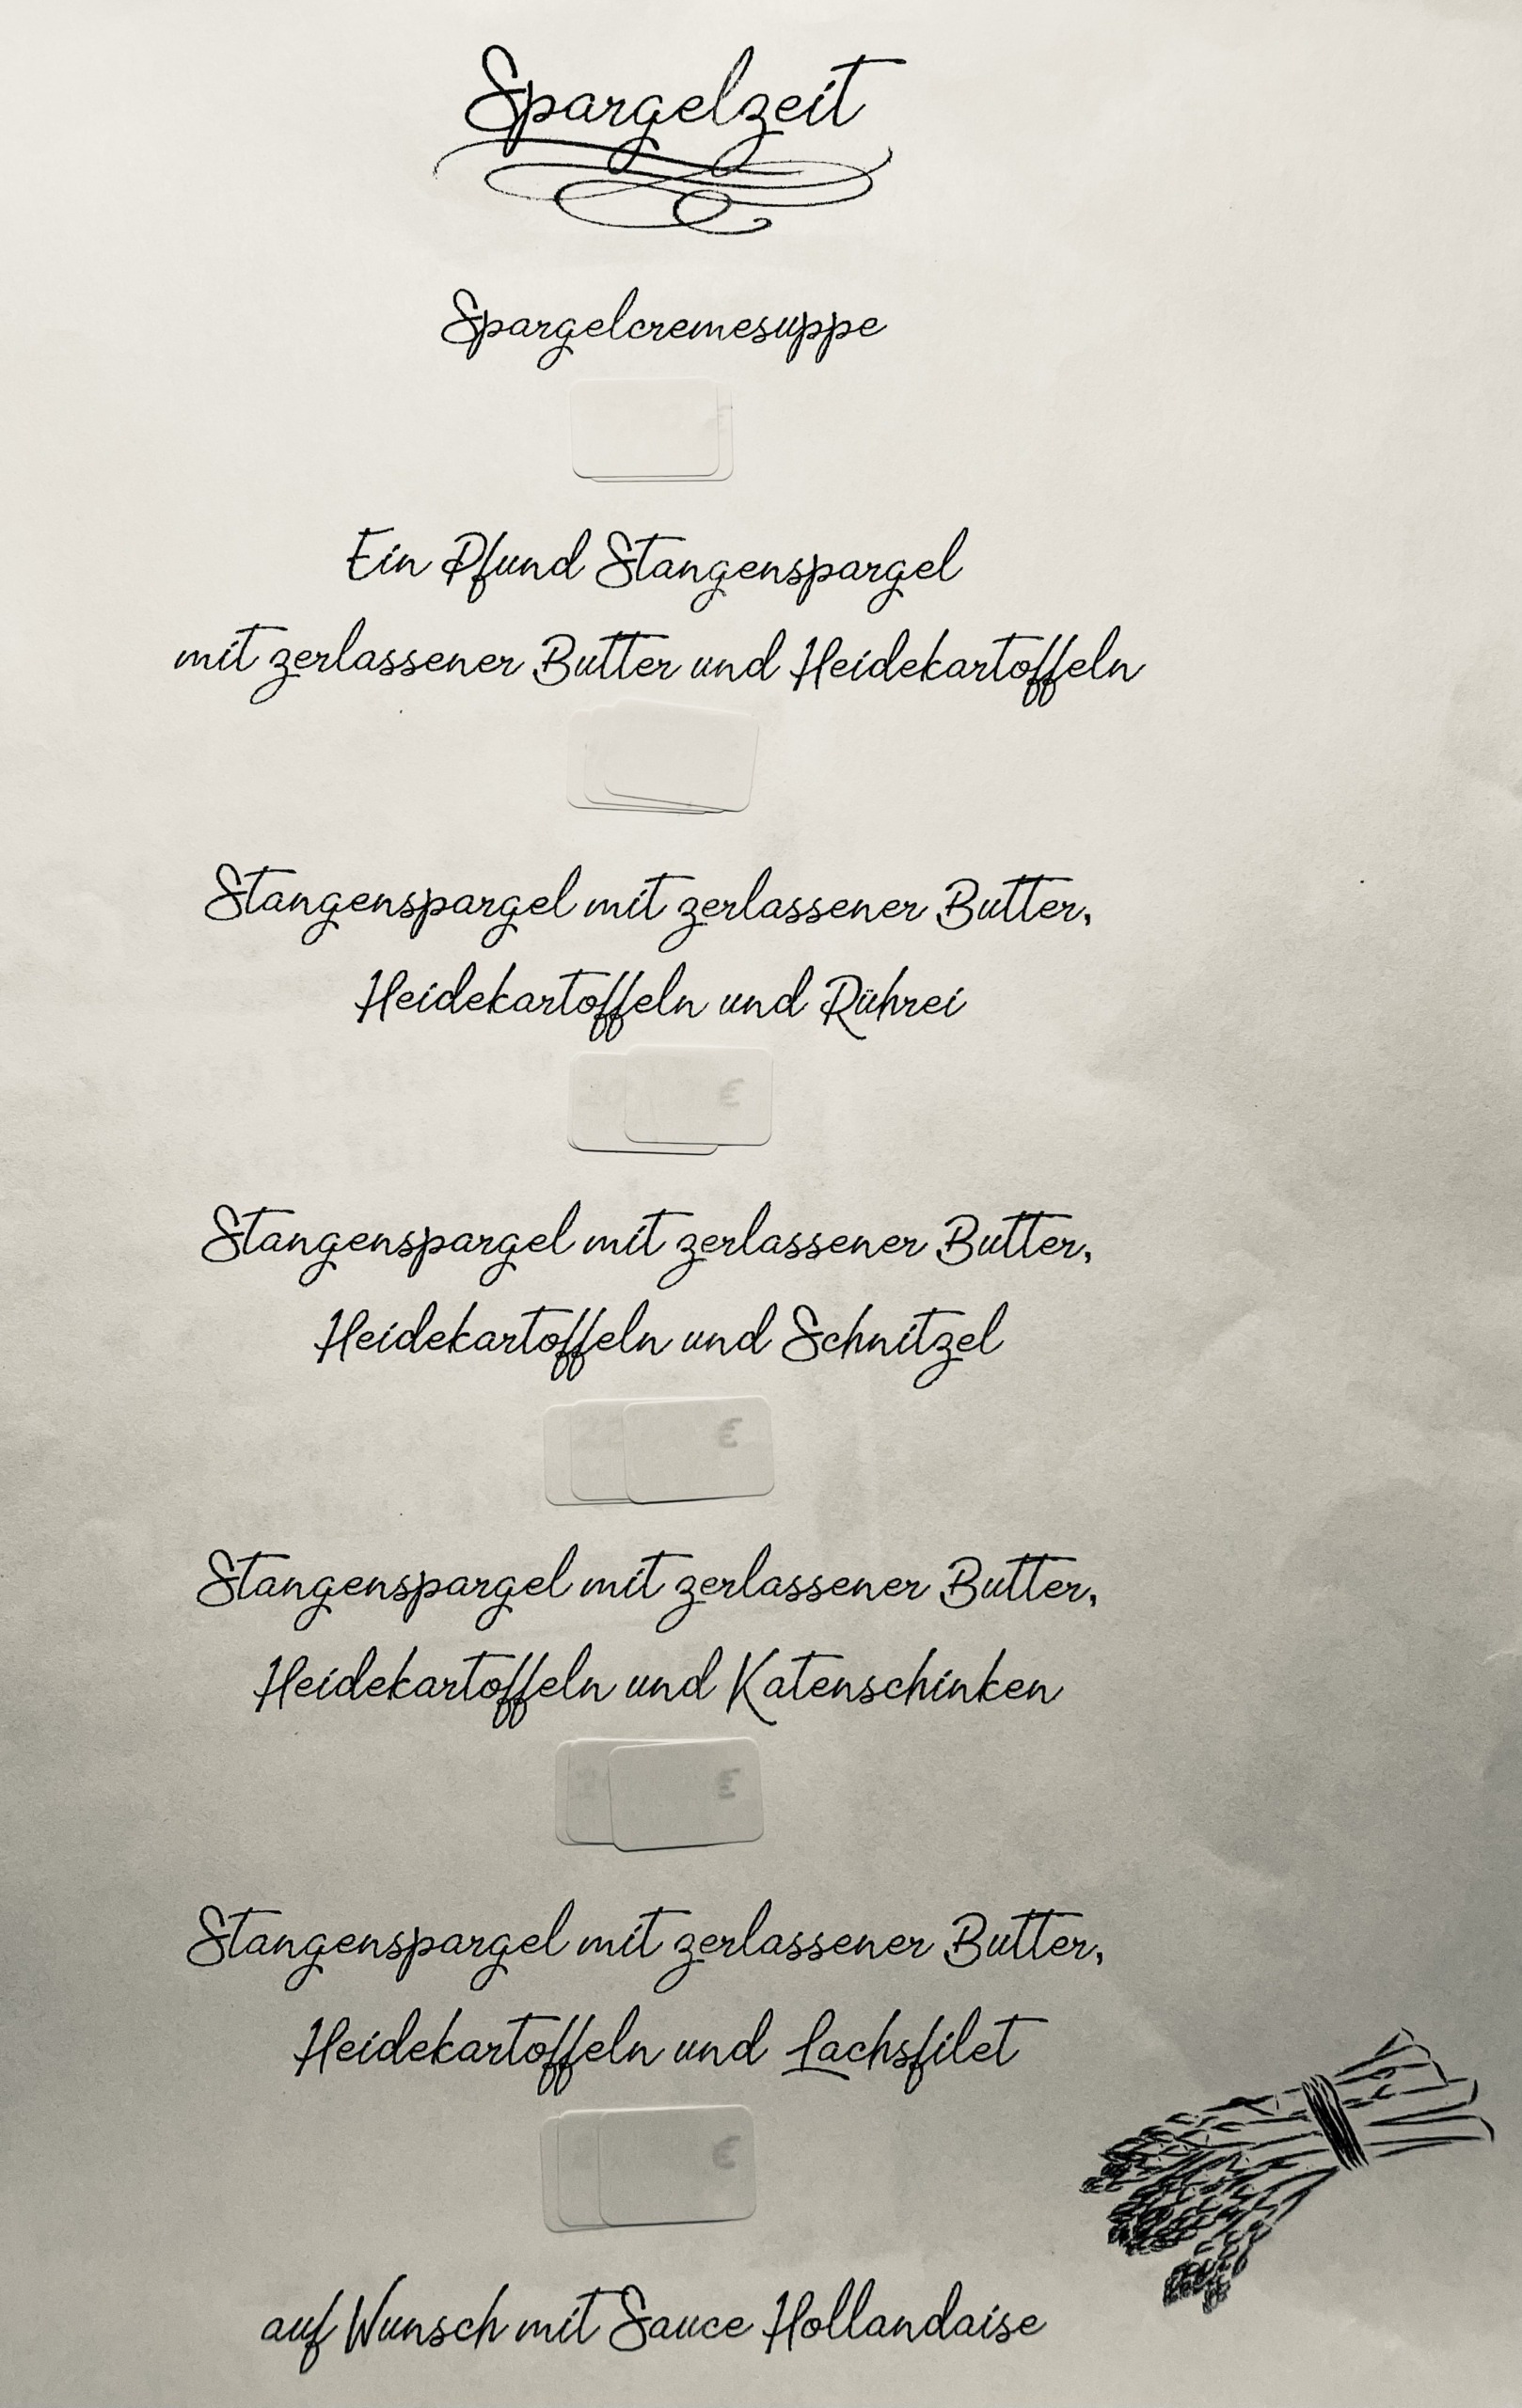 Spargelzeit
Spargelcremesuppe
Ein Pfund Stangenspargel
mit zerlassener Butter und Heidekartoffeln
Stangenspargel mit zerlassener Butter,
Heidekartoffeln und Rührei
€
Stangenspargel mit zerlassener Butter,
Heidekartoffeln und Schnitzel
€
Stangenspargel mit zerlassener Butter,
Heidekartoffeln und Katenschinken
€
Stangenspargel mit zerlassener Butter,
Heidekartoffeln und Lachsfilet
€
auf Wunsch mit Sauce Hollandaise